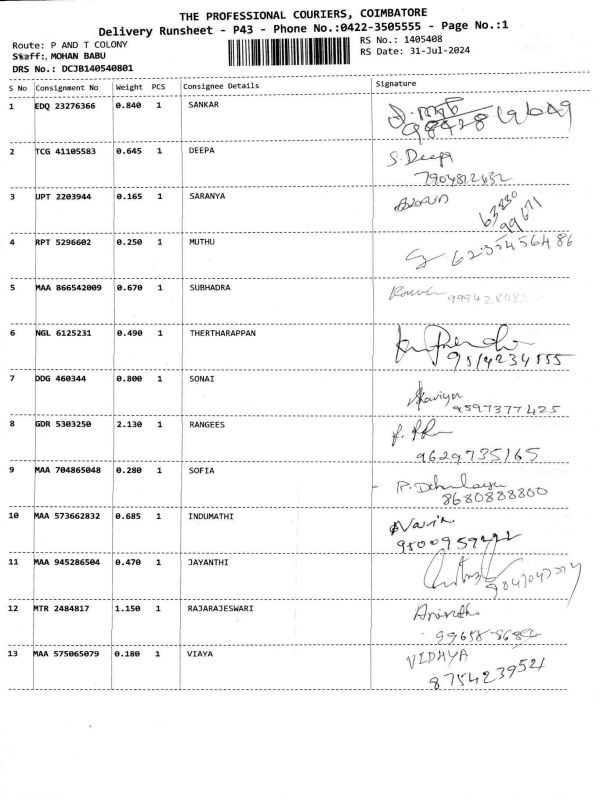 THE PROFESSIONAL COURIERS, COIMBATORE
Delivery Runsheet - P43 - Phone No.:0422-3505555 - Page No.:1
Route: P AND T COLONY RS No.: 1405408
Staff:, MOHAN BABU RS Date: 31-Jul-2024
DRS No.: DCJB140540801
S No Consignment No Weight PCS Consignee Details Signature
1 EDQ 23276366 0.840 1 SANKAR
2 TCG 41105583 0.645 1 DEEPA S. Deepa
3 UPT 2203944 0.165 1 SARANYA
63830
99671
4 RPT 5296602 0.250 1 MUTHU
5 MAA 866542009 0.670 1 SUBHADRA
6 NGL 6125231 0.490 1 THERTHARAPPAN
9514234555
7 DDG 460344 0.800 1 SONAI
9597377425
8 GDR 5303250 2.130 1 RANGEES
9629735165
9 MAA 704865048 0.280 1 SOFIA
8680888800
10 MAA 573662832 0.685 1 INDUMATHI
11 MAA 945286504 0.470 1 JAYANTHI
12 MTR 2484817 1.150 1 RAJARAJESWARI
13 MAA 575065079 0.180 1 VIAYA VIDHYA
8754239521